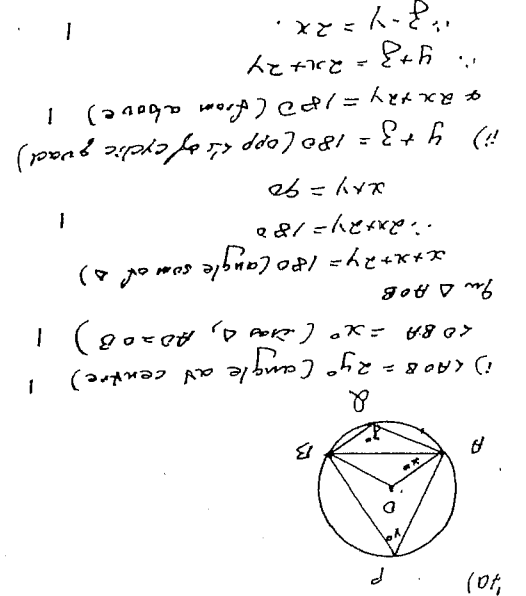 7a)
P
y°
O
x°
A B
z°
Q
i) <AOB = 2y° (angle at centre) 1
<OBA = x° (isos Δ, AO=OB) 1
In Δ AOB
x+x+2y=180 (angle sum of Δ)
∴ 2x+2y=180 1
x+y=90
ii) y+z=180 (opp <'s of cyclic quad)
& 2x+2y=180 (from above) 1
∴ y+z = 2x+2y
∴ z-y = 2x. 1